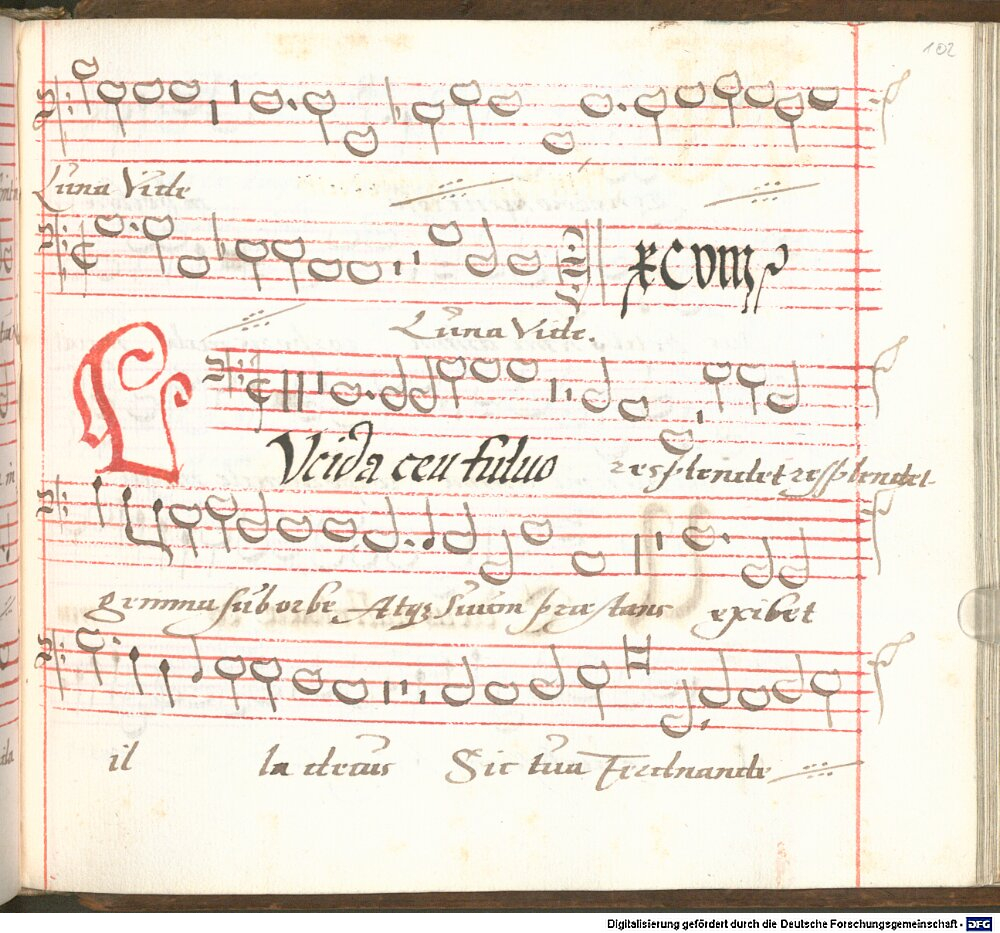 102
Luna Vide
Luna Vide.
LVcida ceu fuluo resplendet resplendet
gemma sub orbe Atqz suum præstans exibet
il la decus Sic tua Ferdnande
Digitalisierung gefördert durch die Deutsche Forschungsgemeinschaft - DFG